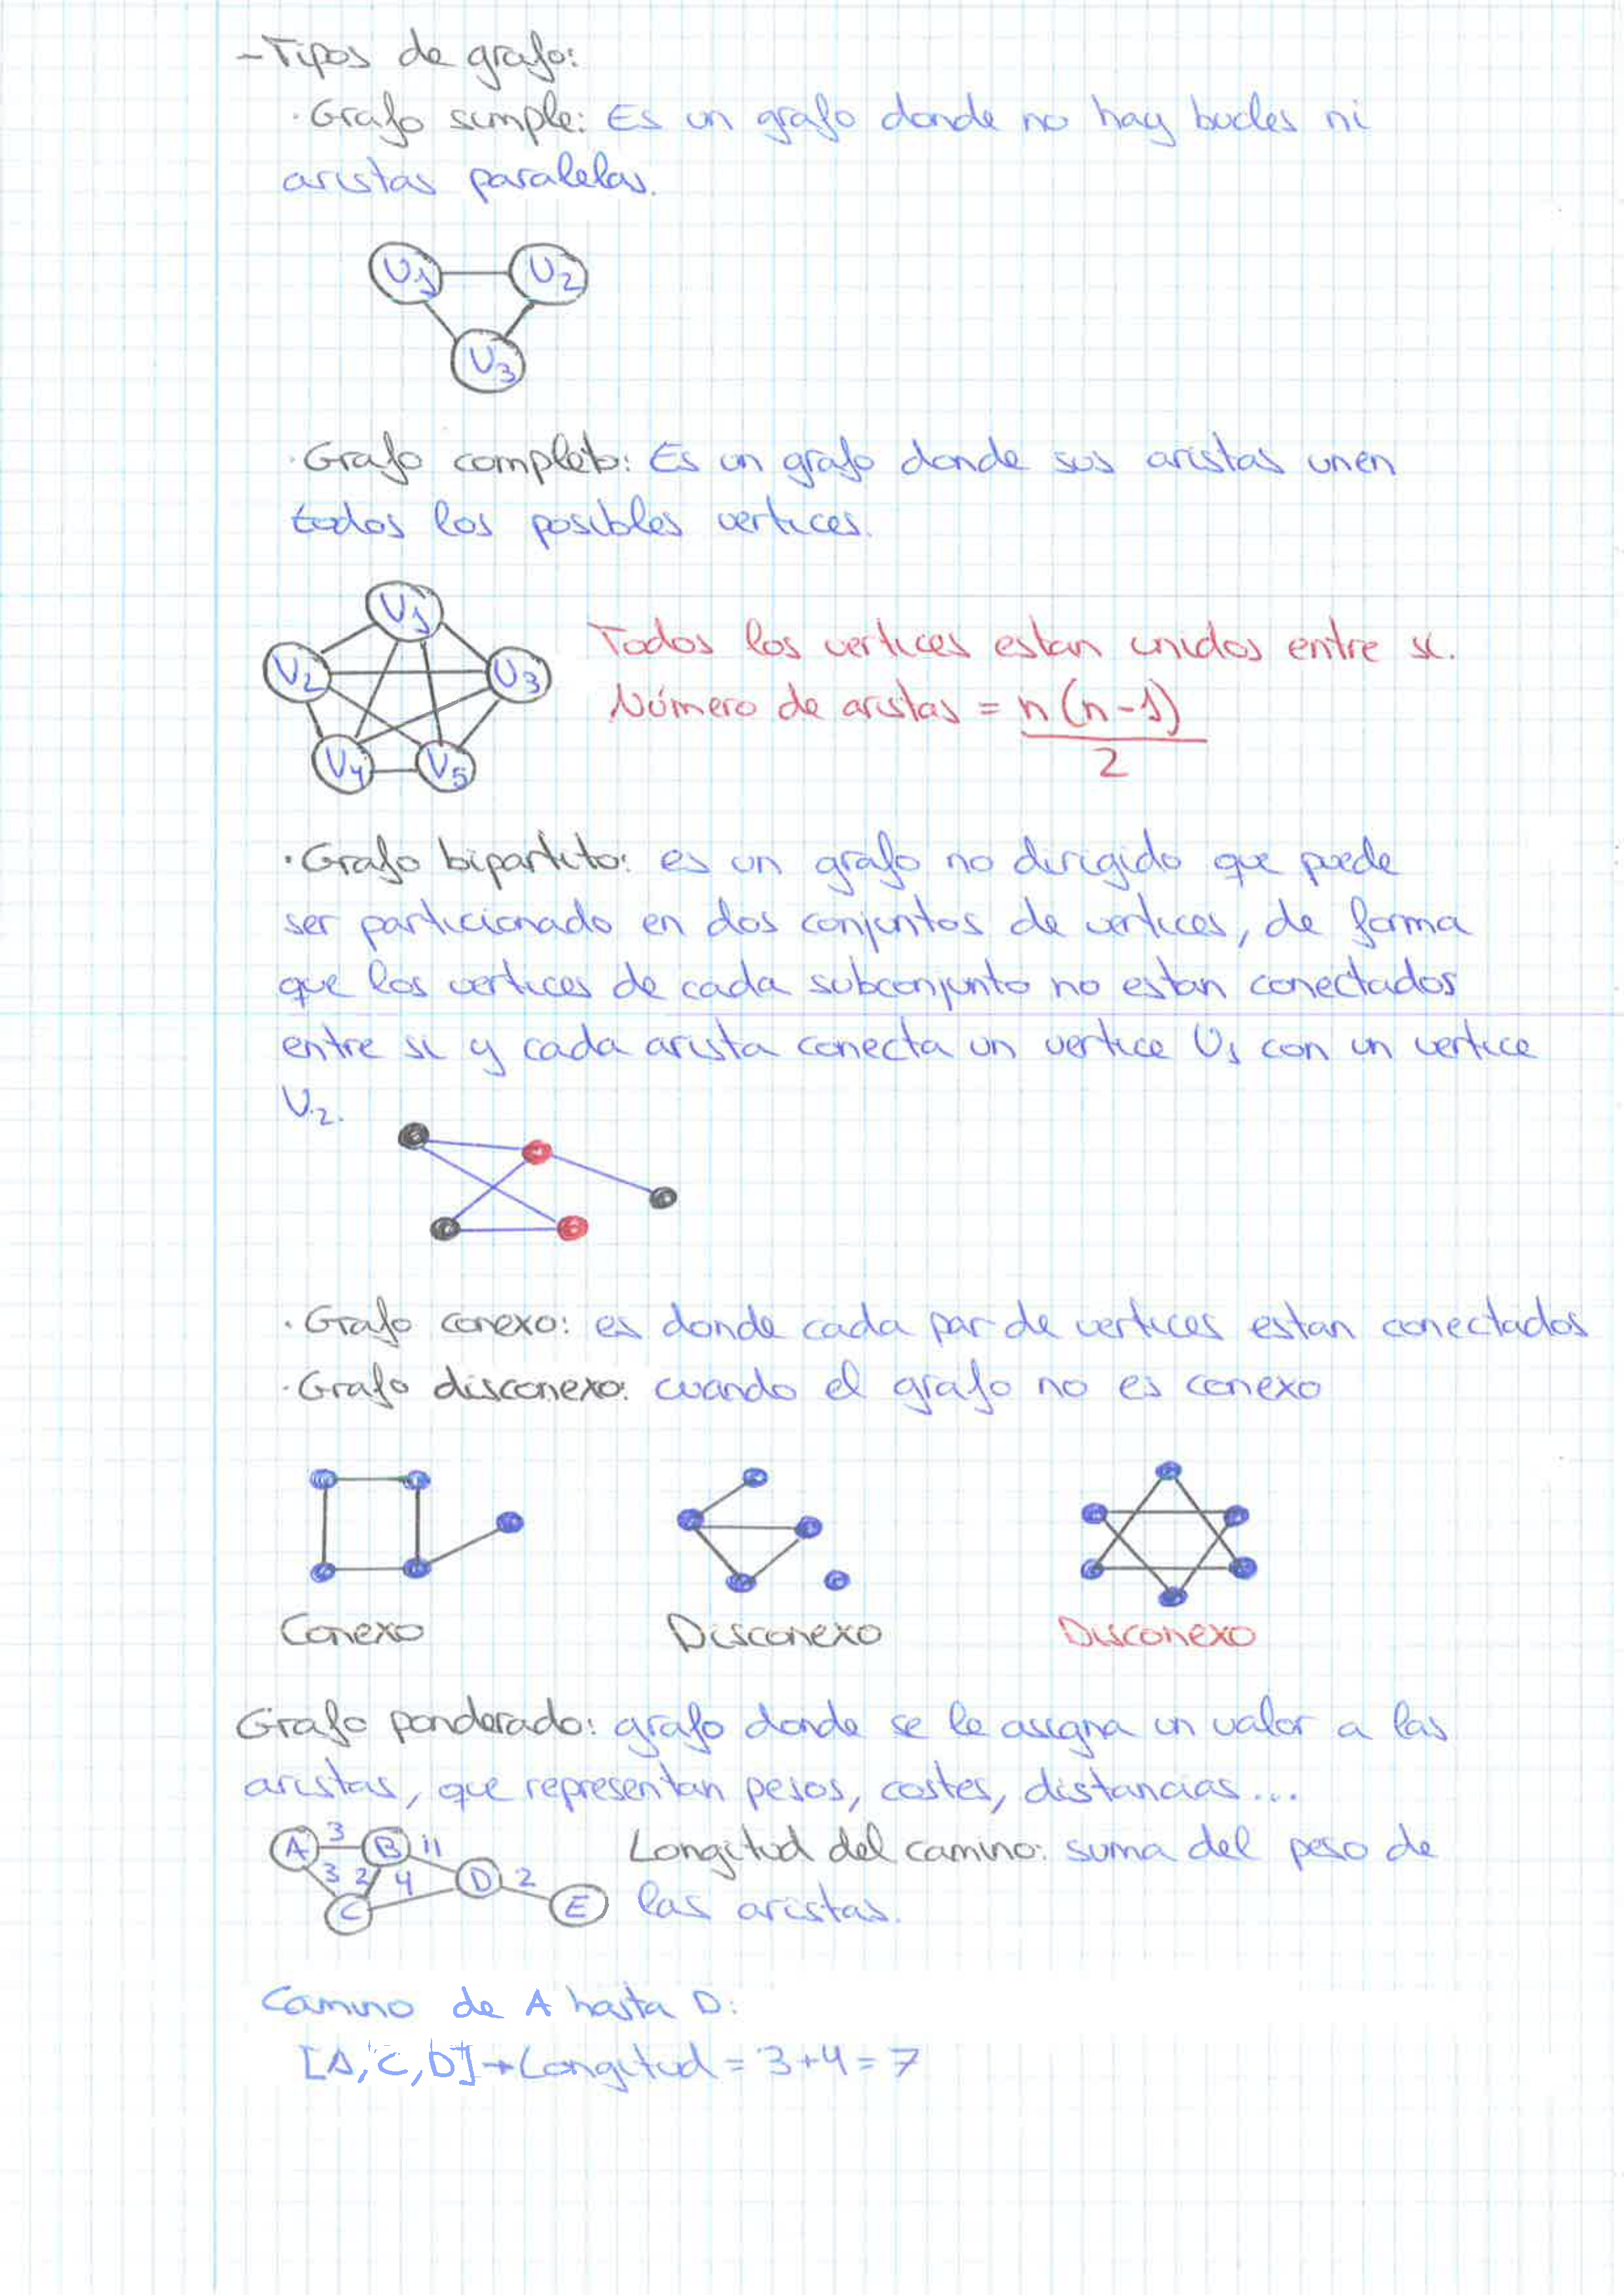 -Tipos de grafo:
·Grafo simple: Es un grafo donde no hay bucles ni
aristas paralelas.
V1 V2
V3
·Grafo completo: Es un grafo donde sus aristas unen
todos los posibles vertices.
V1
V2 V3
V4 V5
Todos los vertices estan unidos entre si.
Número de aristas = n(n-1)
2
·Grafo bipartito: es un grafo no dirigido que puede
ser particionado en dos conjuntos de vertices, de forma
que los vertices de cada subconjunto no estan conectados
entre si y cada arista conecta un vertice V1 con un vertice
V2.
·Grafo conexo: es donde cada par de vertices estan conectados
·Grafo disconexo: cuando el grafo no es conexo
Conexo Disconexo Disconexo
Grafo ponderado: grafo donde se le asigna un valor a las
aristas, que representan pesos, costes, distancias...
A 3 B 11 Longitud del camino: suma del peso de
3 2 4 D 2
C E las aristas.
Camino de A hasta D:
[A, C, D]→Longitud = 3+4=7